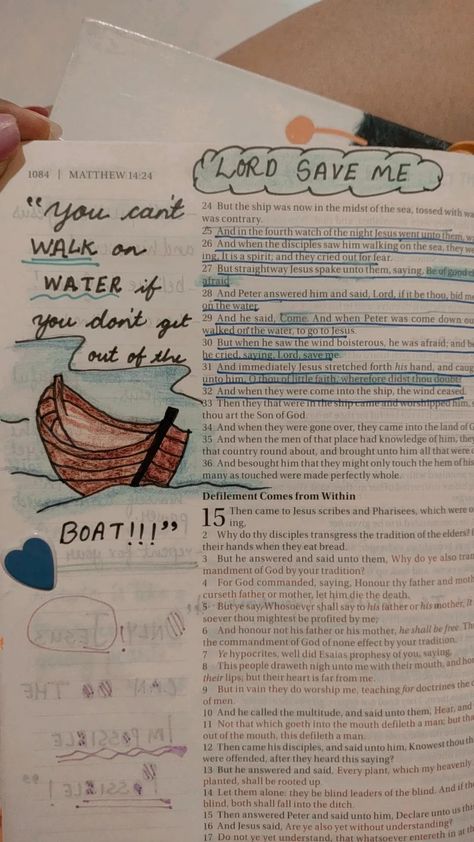 1084 | MATTHEW 14:24
LORD SAVE ME
"You can't
WALK on
WATER if
you don't get
out of the
BOAT!!!"
24 But the ship was now in the midst of the sea, tossed with
was contrary.
25 And in the fourth watch of the night Jesus went unto them,
26 And when the disciples saw him walking on the sea, they
ing, It is a spirit; and they cried out for fear.
27 But straightway Jesus spake unto them, saying, Be of good
afraid.
28 And Peter answered him and said, Lord, if it be thou, bid
on the water.
29 And he said, Come. And when Peter was come down
walked on the water, to go to Jesus.
30 But when he saw the wind boisterous, he was afraid; and
he cried, saying, Lord, save me.
31 And immediately Jesus stretched forth his hand, and
unto him, O thou of little faith, wherefore didst thou doubt?
32 And when they were come into the ship, the wind ceased.
33 Then they that were in the ship came and worshipped him,
thou art the Son of God.
34 And when they were gone over, they came into the land of
35 And when the men of that place had knowledge of him, they
that country round about, and brought unto him all that were
36 And besought him that they might only touch the hem of his
many as touched were made perfectly whole.
Defilement Comes from Within
15 Then came to Jesus scribes and Pharisees, which were
ing,
2 Why do thy disciples transgress the tradition of the elders?
their hands when they eat bread.
3 But he answered and said unto them, Why do ye also
mandment of God by your tradition?
4 For God commanded, saying, Honour thy father and
curseth father or mother, let him die the death.
5 But ye say, Whosoever shall say to his father or his mother,
soever thou mightest be profited by me;
6 And honour not his father or his mother, he shall be free.
the commandment of God of none effect by your tradition.
7 Ye hypocrites, well did Esaias prophesy of you, saying,
8 This people draweth nigh unto me with their mouth, and
their lips; but their heart is far from me.
9 But in vain they do worship me, teaching for doctrines the
of men.
10 And he called the multitude, and said unto them, Hear, and
11 Not that which goeth into the mouth defileth a man; but
out of the mouth, this defileth a man.
12 Then came his disciples, and said unto him, Knowest thou
were offended, after they heard this saying?
13 But he answered and said, Every plant, which my heavenly
planted, shall be rooted up.
14 Let them alone: they be blind leaders of the blind. And if the
blind, both shall fall into the ditch.
15 Then answered Peter and said unto him, Declare unto us
16 And Jesus said, Are ye also yet without understanding?
17 Do not ye yet understand, that whatsoever entereth in at